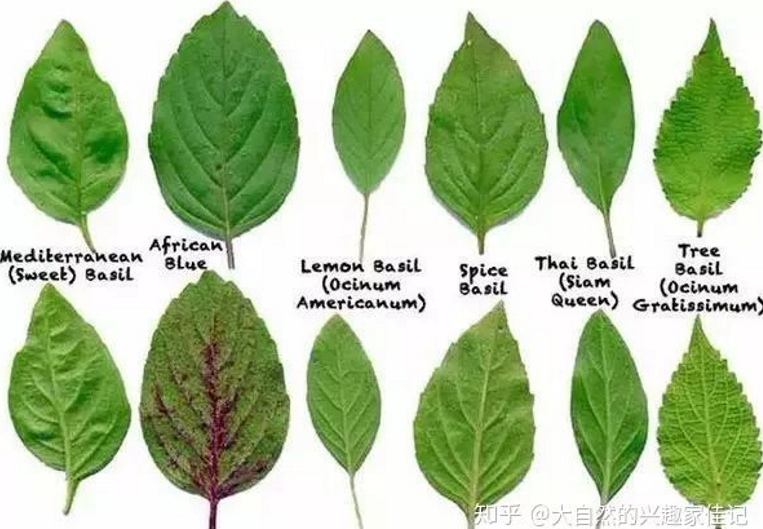 Mediterranean
(Sweet) Basil
African
Blue
Lemon Basil
(Ocinum
Americanum)
Spice
Basil
Thai Basil
(Siam
Queen)
Tree
Basil
(Ocinum
Gratissimum)
知乎 @大自然的兴趣家佳记